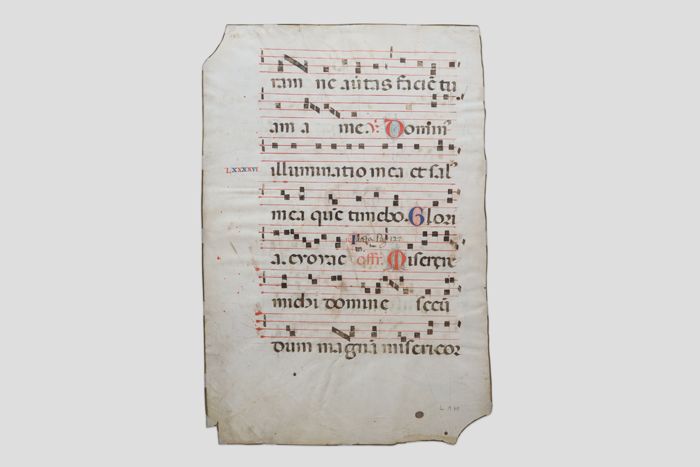 ram ne auttas faciē tu
am a me. ℣. Domin⁹
LXXXXVI illuminatio mea et sal⁹
mea quē timebo. Glori
a. evovae offr. Miserere
michi domine secū
dum magnā misericor